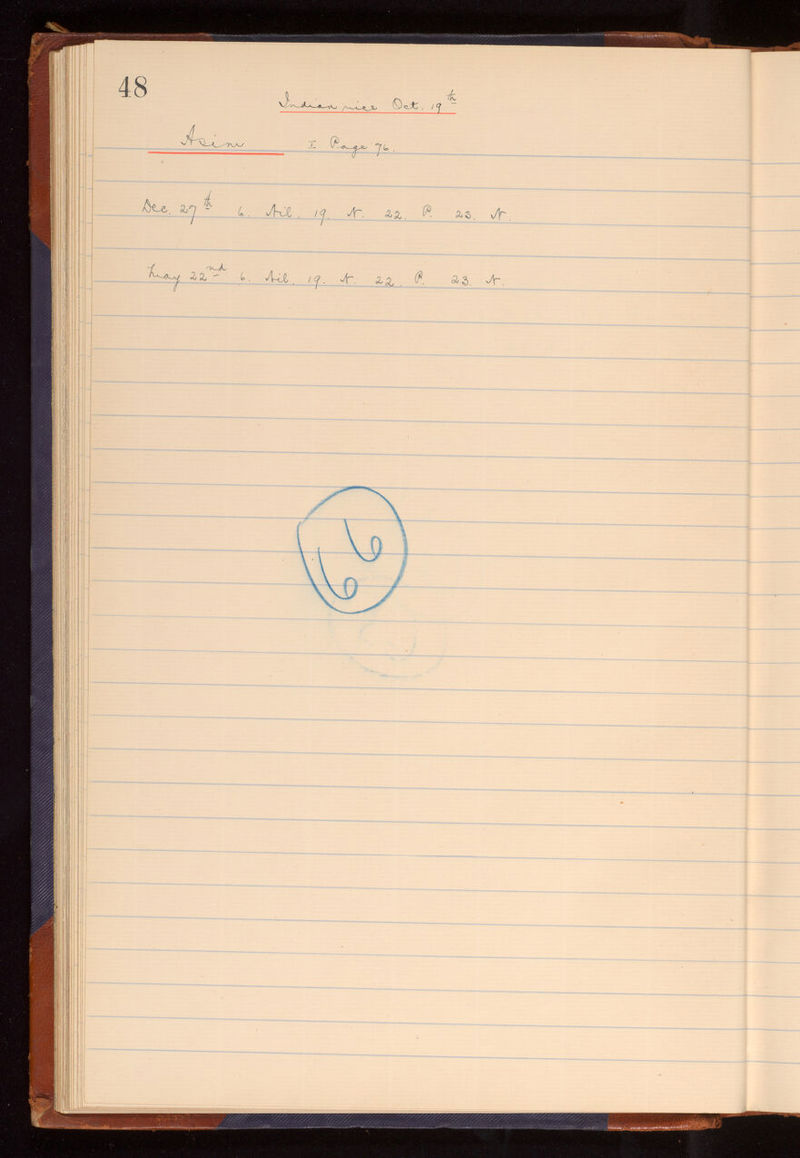 48
Indian rice Oct. 19th
Asim I Page 76.
Dec. 27th 6. Ail. 19. N. 22. P. 23. N.
May 22nd 6. Ail. 19. N. 22. P. 23. N.
66